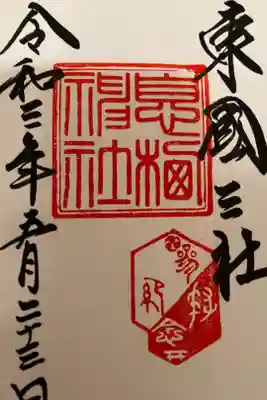 東國三社
息栖
神社
令和三年五月二十三日